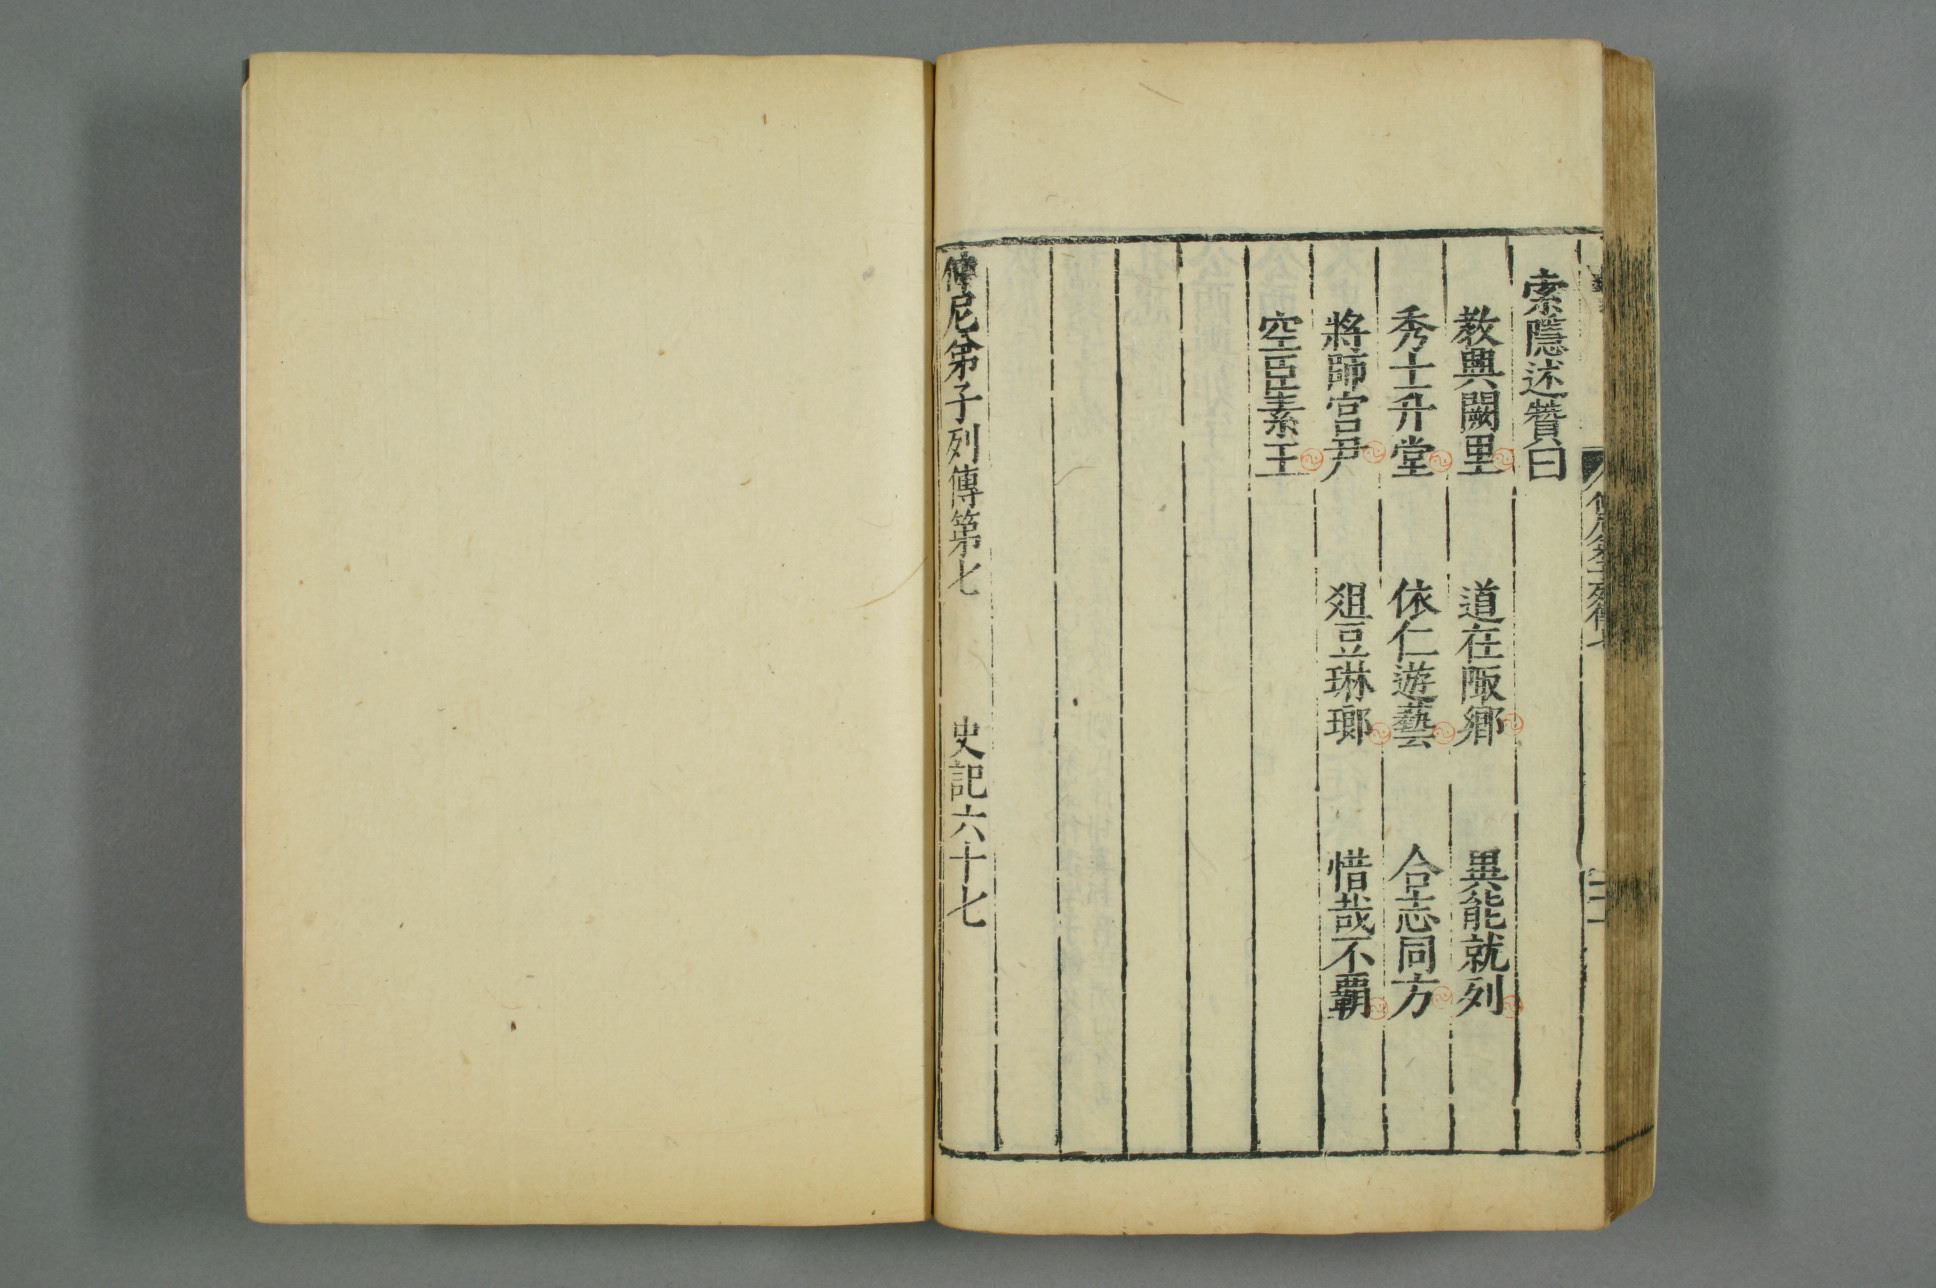 索隱述贊曰
教興闕里　道在陬鄉　異能就列
秀士升堂　依仁遊藝　合志同方
將師宮尹　俎豆琳瑯　惜哉不霸
空臣素王
仲尼第子列傳第七　史記六十七